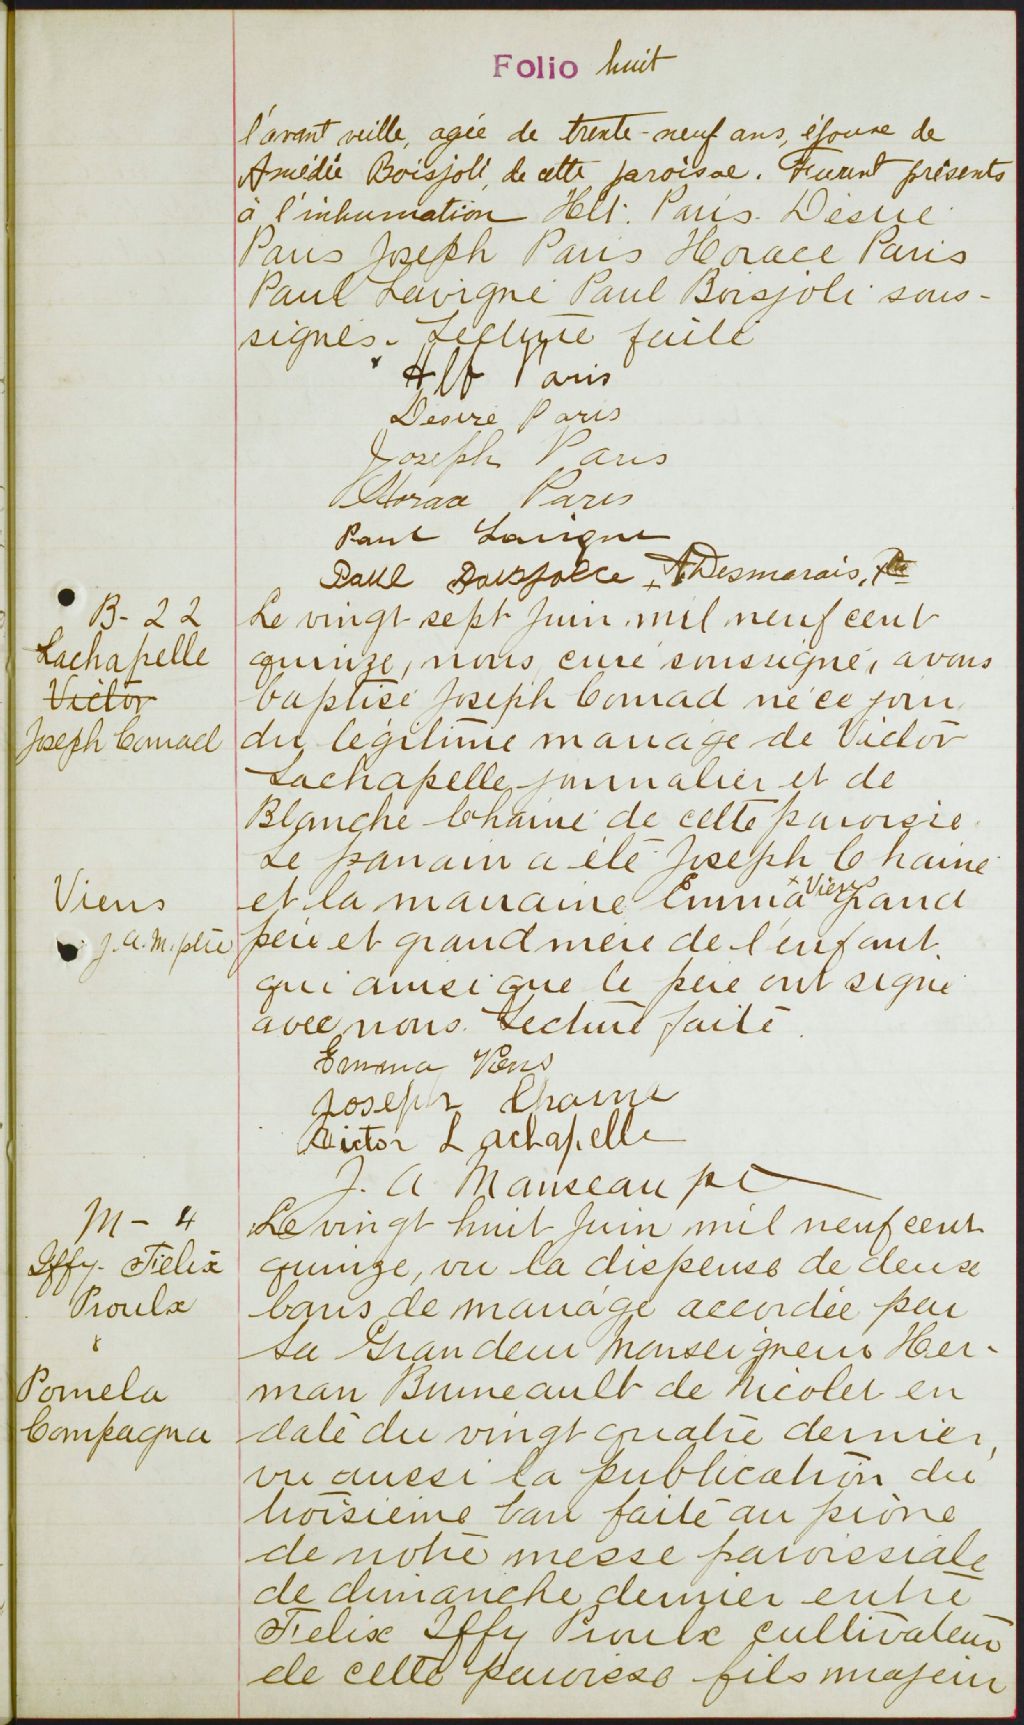 Folio huit
l'avant veille, agée de trente-neuf ans, épouse de
Amédée Boisjoli, de cette paroisse. Furent présents
à l'inhumation Alf. Paris. Désiré
Paris Joseph Paris Horace Paris
Paul Lavigne Paul Boisjoli sous-
signés. Lecture faite
Alf Paris
Desire Paris
Joseph Paris
Horace Paris
Paul Lavigne
Paul Boisjolie A Desmarais, Ptre
B-22
Lachapelle
Victor
Joseph Conrad
Le vingt sept Juin mil neuf cent
quinze, nous, curé soussigné, avons
baptisé Joseph Conrad né ce jour
du légitime mariage de Victor
Lachapelle journalier et de
Blanche Chainé de cette paroisse.
Le parrain a été Joseph Chainé
et la marraine Emma + Viens grand
père et grand mère de l'enfant
qui ainsi que le père ont signé
avec nous. Lecture faite.
Viens
J.A.M. ptre
Emma Viens
Joseph Chaine
Victor Lachapelle
J. A. Manseau pt
M-4
Iffy-Félix
Proulx
&
Pomela
Compagna
Le vingt huit Juin mil neuf cent
quinze, vu la dispense de deux
bans de mariage accordée par
Sa Grandeur Monseigneur Her-
man Bruneault de Nicolet en
date du vingt quatre dernier,
vu aussi la publication du
troisième ban faite au prône
de notre messe paroissiale
de dimanche dernier entre
Felix Iffy Proulx cultivateur
de cette paroisse fils majeur